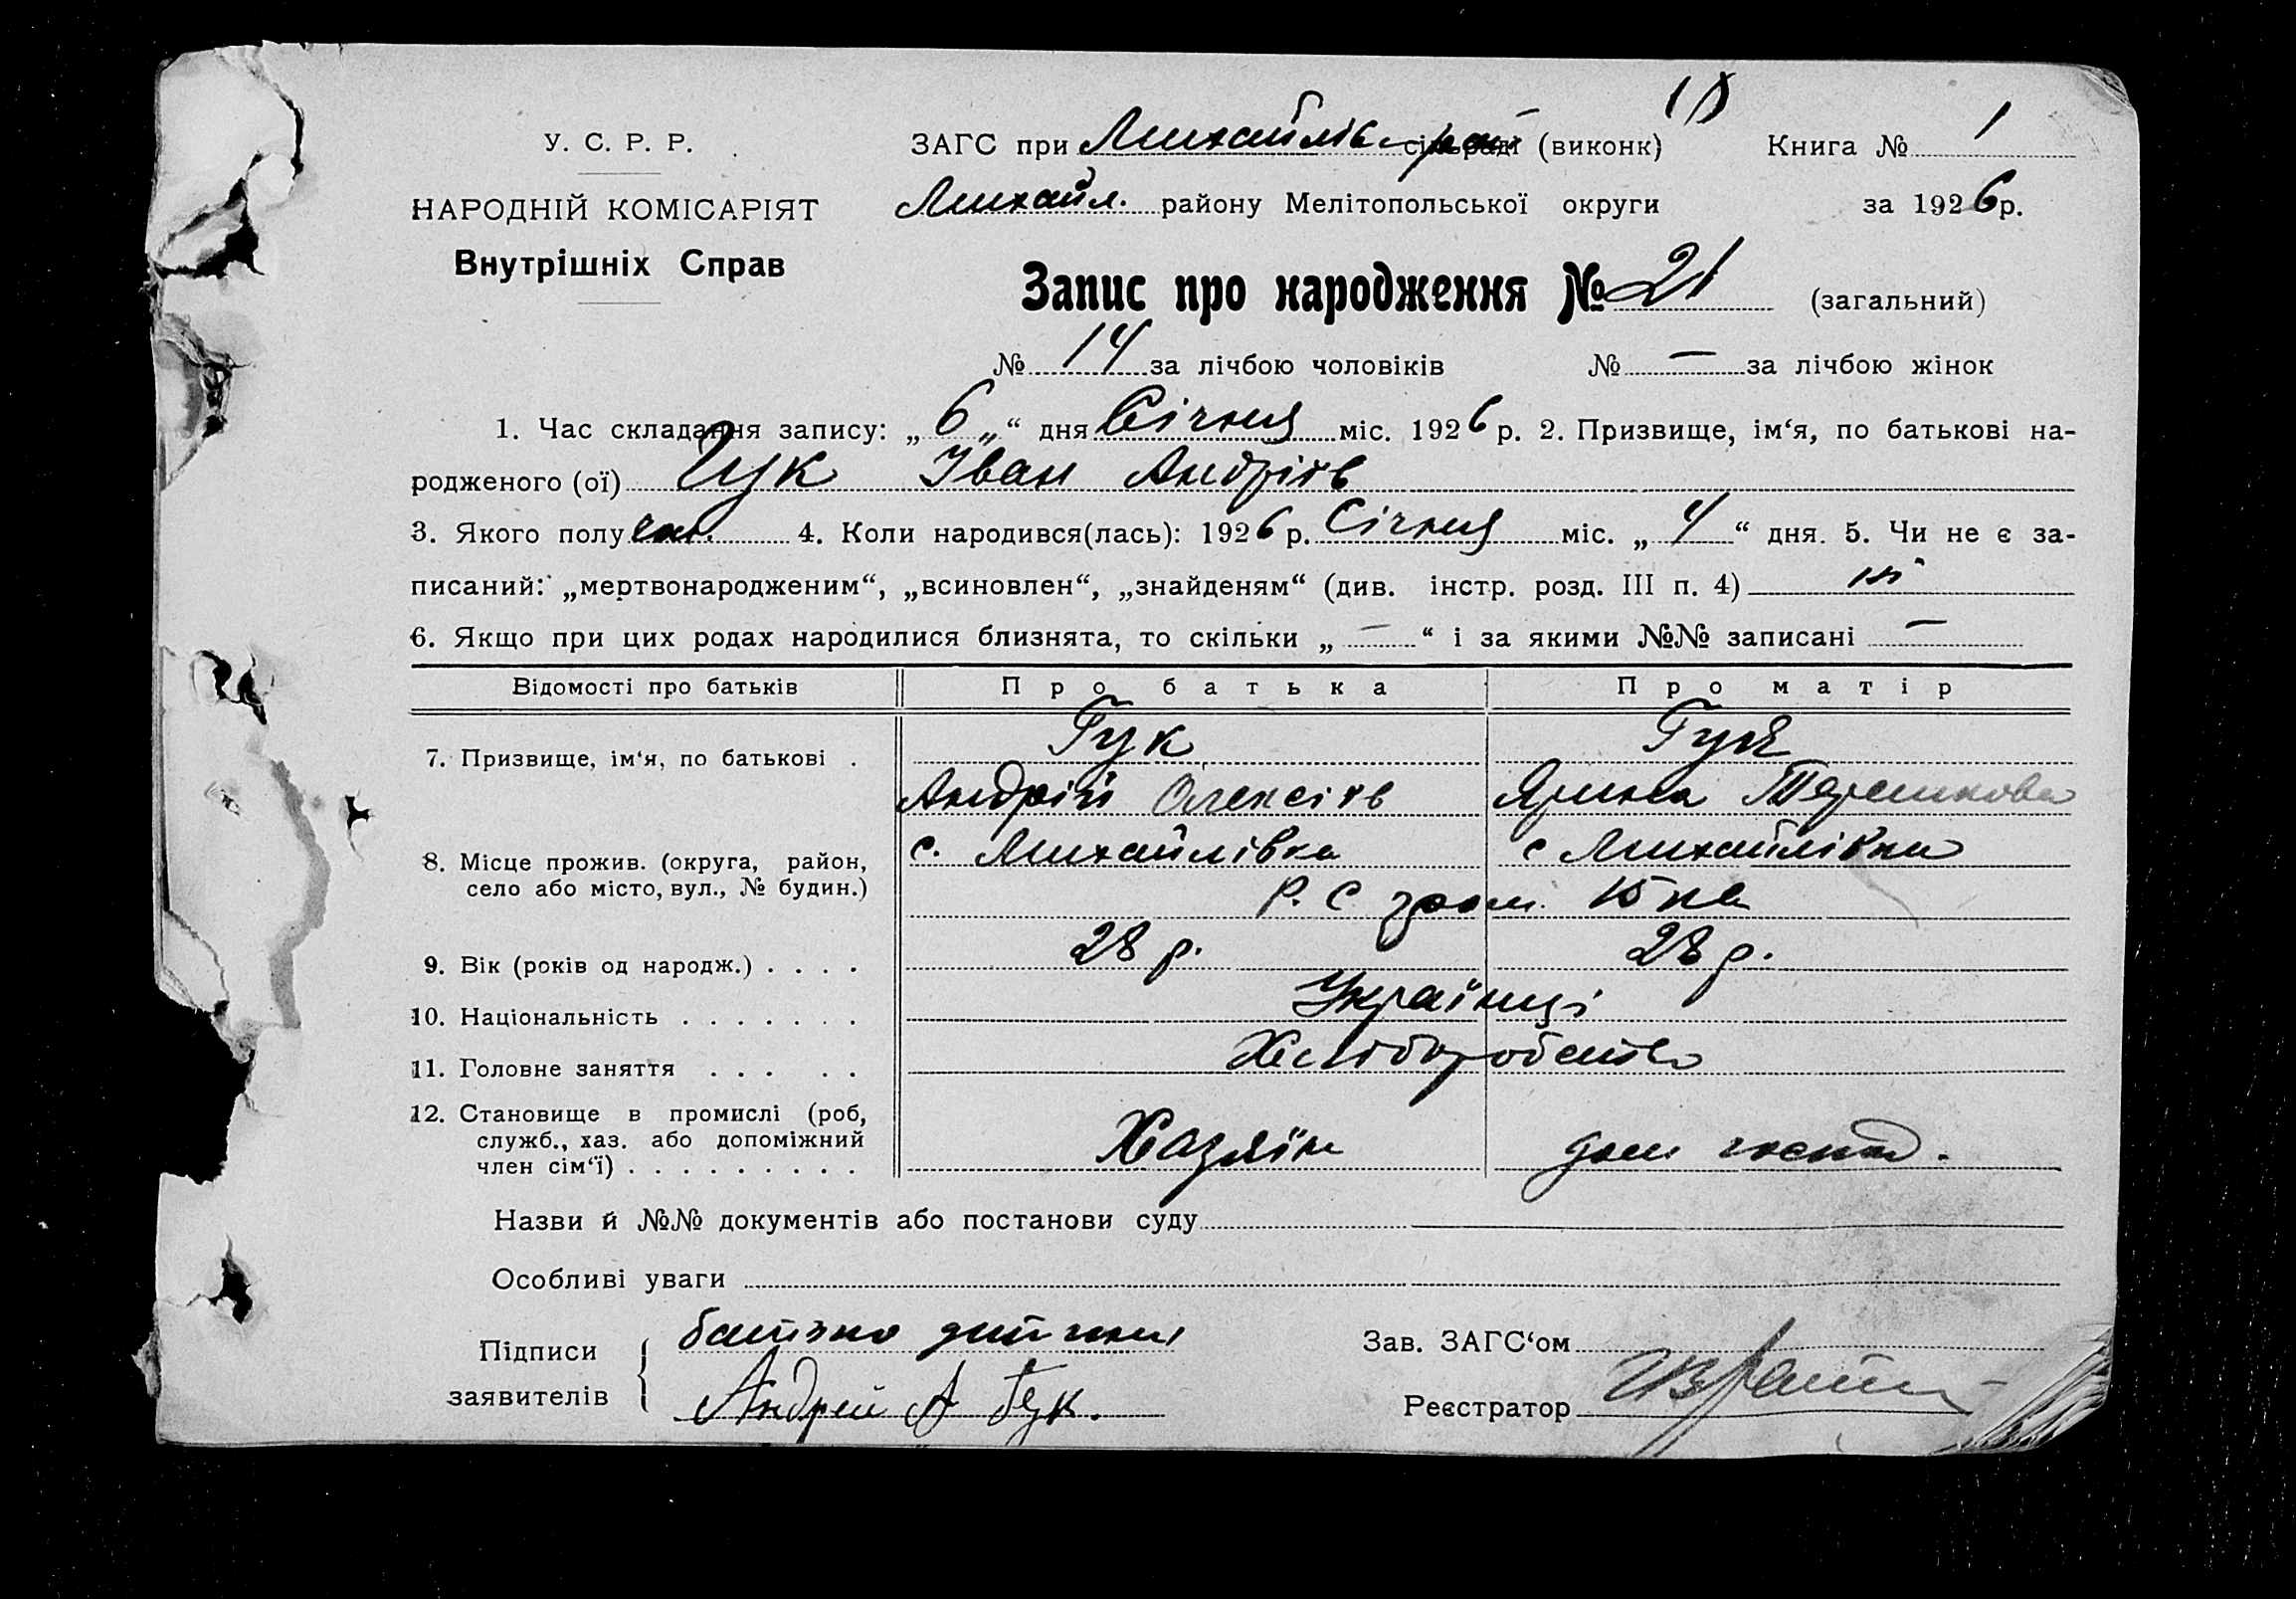 У. С. Р. Р.
НАРОДНІЙ КОМІСАРІЯТ
Внутрішніх Справ
ЗАГС при Михайлів рай (виконк) Книга № 1
Михайл. району Мелітопольської округи за 1926 р.
Запис про народження № 21 (загальний)
№ 14 за лічбою чоловіків № — за лічбою жінок
1. Час складання запису: „ 6 „“ дня Січня міс. 1926 р. 2. Призвище, ім‘я, по батькові на-
родженого (ої) Гук Іван Андріїв
3. Якого полу чол. 4. Коли народився(лась): 1926 р. Січня міс. „ 4 “ дня. 5. Чи не є за-
писаний: „мертвонародженим“, „всиновлен“, „знайденям“ (див. інстр. розд. III п. 4) ні
6. Якщо при цих родах народилися близнята, то скільки „ — “ і за якими №№ записані —
Відомості про батьків Про батька Про матір
7. Призвище, ім‘я, по батькові . Гук Гук
Андрій Олексіїв Ярина
8. Місце прожив. (округа, район, с. Михайлівка с Михайлівка
село або місто, вул., № будин.) Р. С гром.
9. Вік (років од народж.) . . . . 28 р. 28 р.
10. Національність . . . . . . . Українці
11. Головне заняття . . . . . Хліборобство
12. Становище в промислі (роб,
служб., хаз. або допоміжний Хазяїн дом господ.
член сім‘ї) . . . . . . . . .
Назви й №№ документів або постанови суду
Особливі уваги
Підписи батько дитини Зав. ЗАГС‘ом
заявителів Андрей А Гук. Реєстратор